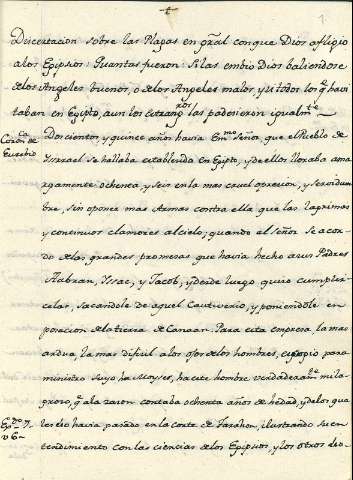 1
Discertacion sobre las Plagas en gral con que Dios afligio
a los Egipsios: Quantas fueron: Si las embio Dios baliendose
de los Angeles buenos, ò de los Angeles malos, y si todos los q havi
taban en Egipto, aun los estrangros las padesieron igualmte
Ca
Coron de
Eusebio
Doscientos, y quince años havia Emo Señor, que el Pueblo de
Ysrrael se hallaba establecido en Egipto, y de ellos lloraba ama
rgamente ochenta, y seis en la mas cruel opresion, y servidum
bre, sin oponer mas Armas contra ella que las lagrimas
y continuos clamores al cielo; quando el señor se acor
do de las grandes promesas que havia hecho a sus Padres
Habran, Yssac, y Jacob, y desde luego quiso cumplir
celas, sacandole de aquel Cautiverio, y poniendole en
posecion de la tierra de Canaan. Para esta empresa, la mas
ardua, la mas dificil a los ojos de los hombres, escogio para
ministro suyo ha Moyses, ha este hombre verdaderamte mila
groso, q a la razon contaba ochenta años de hedad, y de los qua
Exdo 7
v 6
les los havia pasado en la corte de Farahon, ilustrando su en
tendimiento con las ciencias de los Egipsios, y los otros